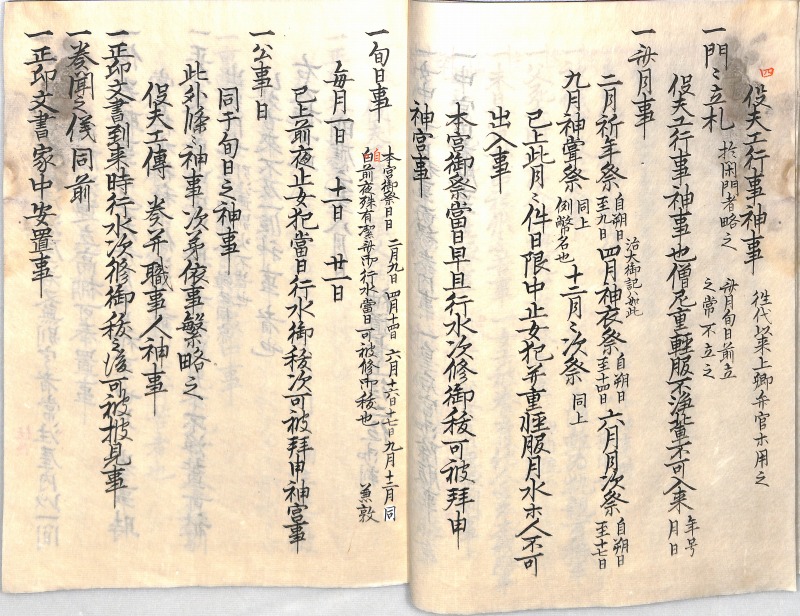 四
役夫工行事神事 往代以来上卿弁官ホ用之
一門々立札 於閑門者略之 毎月旬日前立之常不立之
役夫工行事神事也僧尼重軽服不浄輩不可入来 年号月日
一毎月事
二月祈年祭 自朔日至九日 治大御記如此 四月神衣祭 自朔日至十四日 六月月次祭 自朔日至十七日
九月神嘗祭 同上 例幣名也 十二月々次祭 同上
已上此月々件日限中止女犯并重軽服月水ホ人不可
出入事
本宮御祭當日早旦行水次修御秡可被拜申
神宮事
一旬日事 本宮御祭日日 二月九日 四月十四日 六月十六日十七日九月十二月同
自前夜殊有潔齋而行水當日可被修御秡也 兼敦
毎月一日 十一日 廿一日
已上前夜止女犯當日行水御秡次可被拜申神宮事
一公事日
同于旬日之神事
此外條々神事次第依事繁略之
役夫工傳 奏并職事人神事
一正印文書到来時行水次修御秡之後可被披見事
一奏聞之儀同前
一正印文書家中安置事